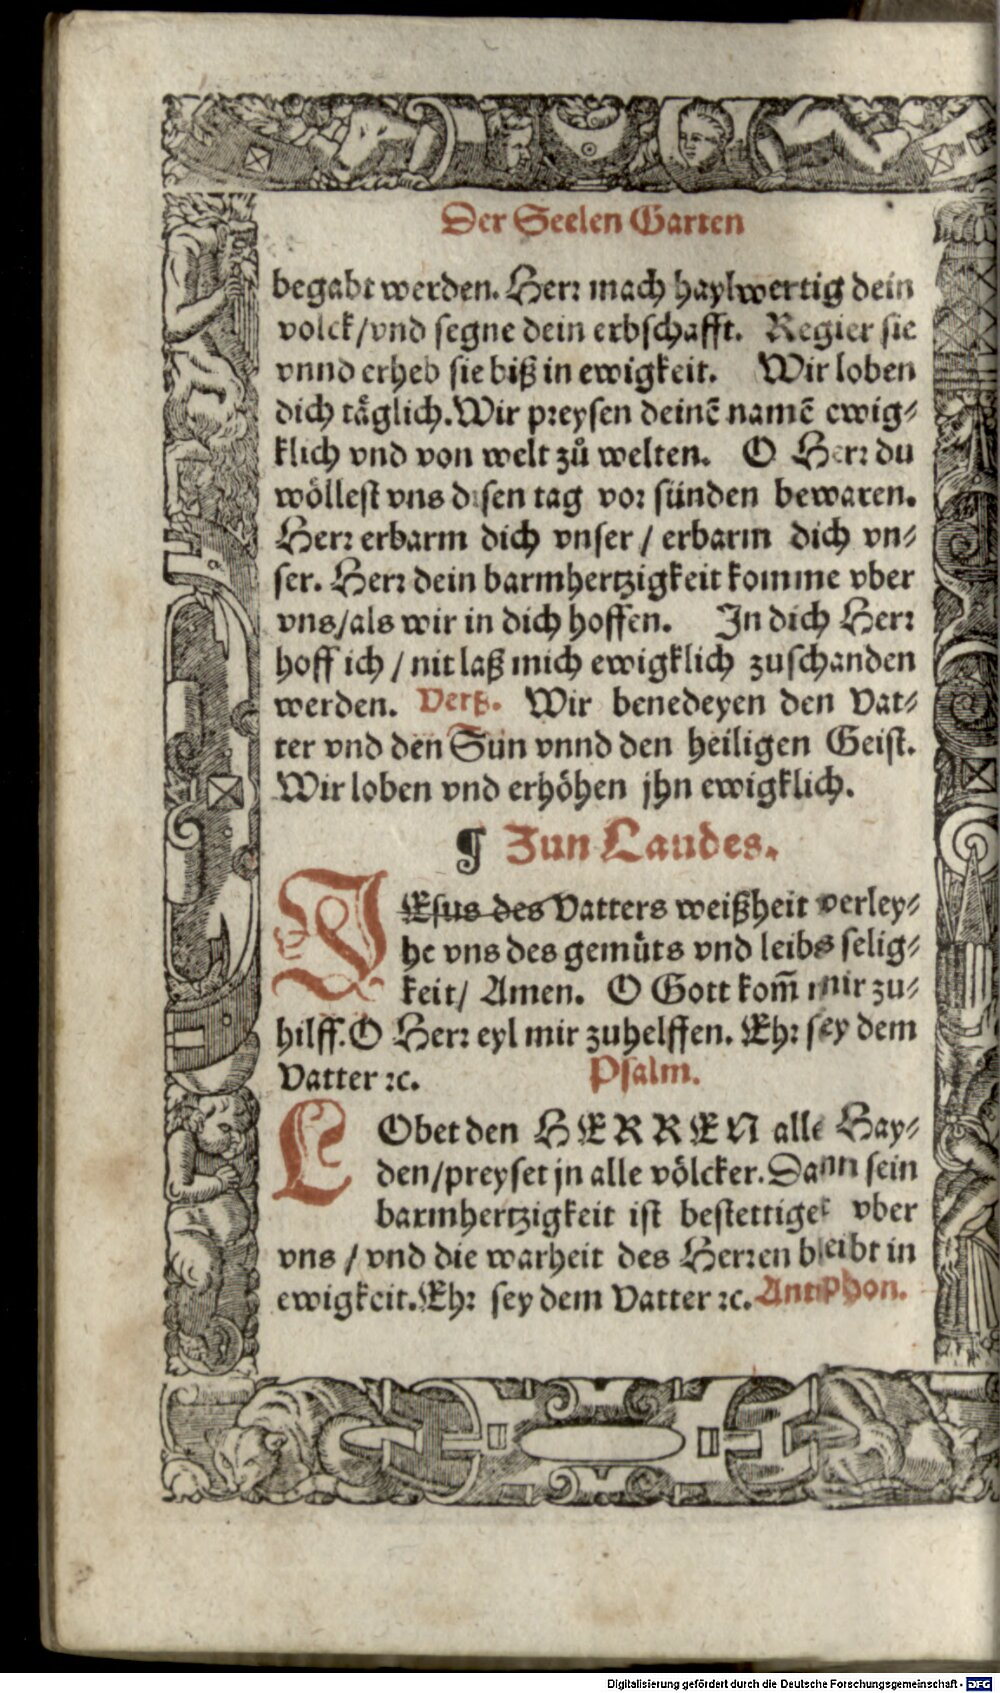 Der Seelen Garten
begabt werden. Herr mach haylwertig dein
volck/vnd segne dein erbschafft. Regier sie
vnnd erheb sie biß in ewigkeit. Wir loben
dich täglich. Wir preysen deinē namē ewig⸗
klich vnd von welt zů welten. O Herr du
wöllest vns disen tag vor sünden bewaren.
Herr erbarm dich vnser / erbarm dich vn⸗
ser. Herr dein barmhertzigkeit komme vber
vns/als wir in dich hoffen. In dich Herr
hoff ich / nit laß mich ewigklich zuschanden
werden. Verß. Wir benedeyen den Vat⸗
ter vnd den Sun vnnd den heiligen Geist.
Wir loben vnd erhöhen jhn ewigklich.
¶ Zun Laudes.
JEsus des Vatters weißheit verley⸗
he vns des gemüts vnd leibs selig⸗
keit/ Amen. O Gott kom̃ mir zu⸗
hilff. O Herr eyl mir zuhelffen. Ehr sey dem
Vatter ꝛc. Psalm.
LObet den HERREN alle Hay⸗
den/preyset jn alle völcker. Dann sein
barmhertzigkeit ist bestettiget vber
vns / vnd die warheit des Herren bleibt in
ewigkeit. Ehr sey dem Vatter ꝛc. Antiphon.
Digitalisierung gefördert durch die Deutsche Forschungsgemeinschaft - DFG